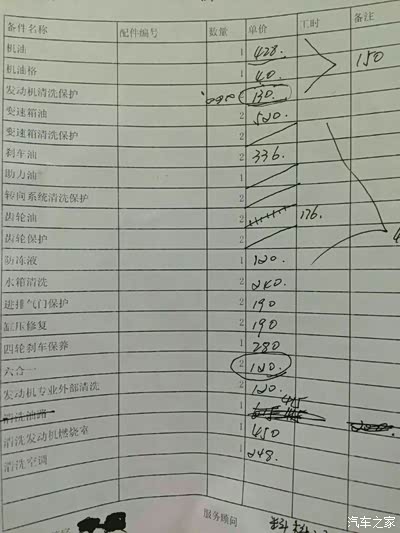 备件名称 配件编号 数量 单价 工时 备注
机油 1 428.
机油格 1 40. 150
发动机清洗保护 130.
变速箱油 2 520.
变速箱清洗保护 2
刹车油 2 336.
助力油 1
转向系统清洗保护 2
齿轮油 2 176.
齿轮保护 2
防冻液 1 120.
水箱清洗 2 240.
进排气门保护 2 190
缸压修复 2 190
四轮刹车保养 1 280
六合一 2 120.
发动机专业外部清洗 2 120.
清洗油路 1
清洗发动机燃烧室 1 450
清洗空调 1 248.
服务顾问
汽车之家